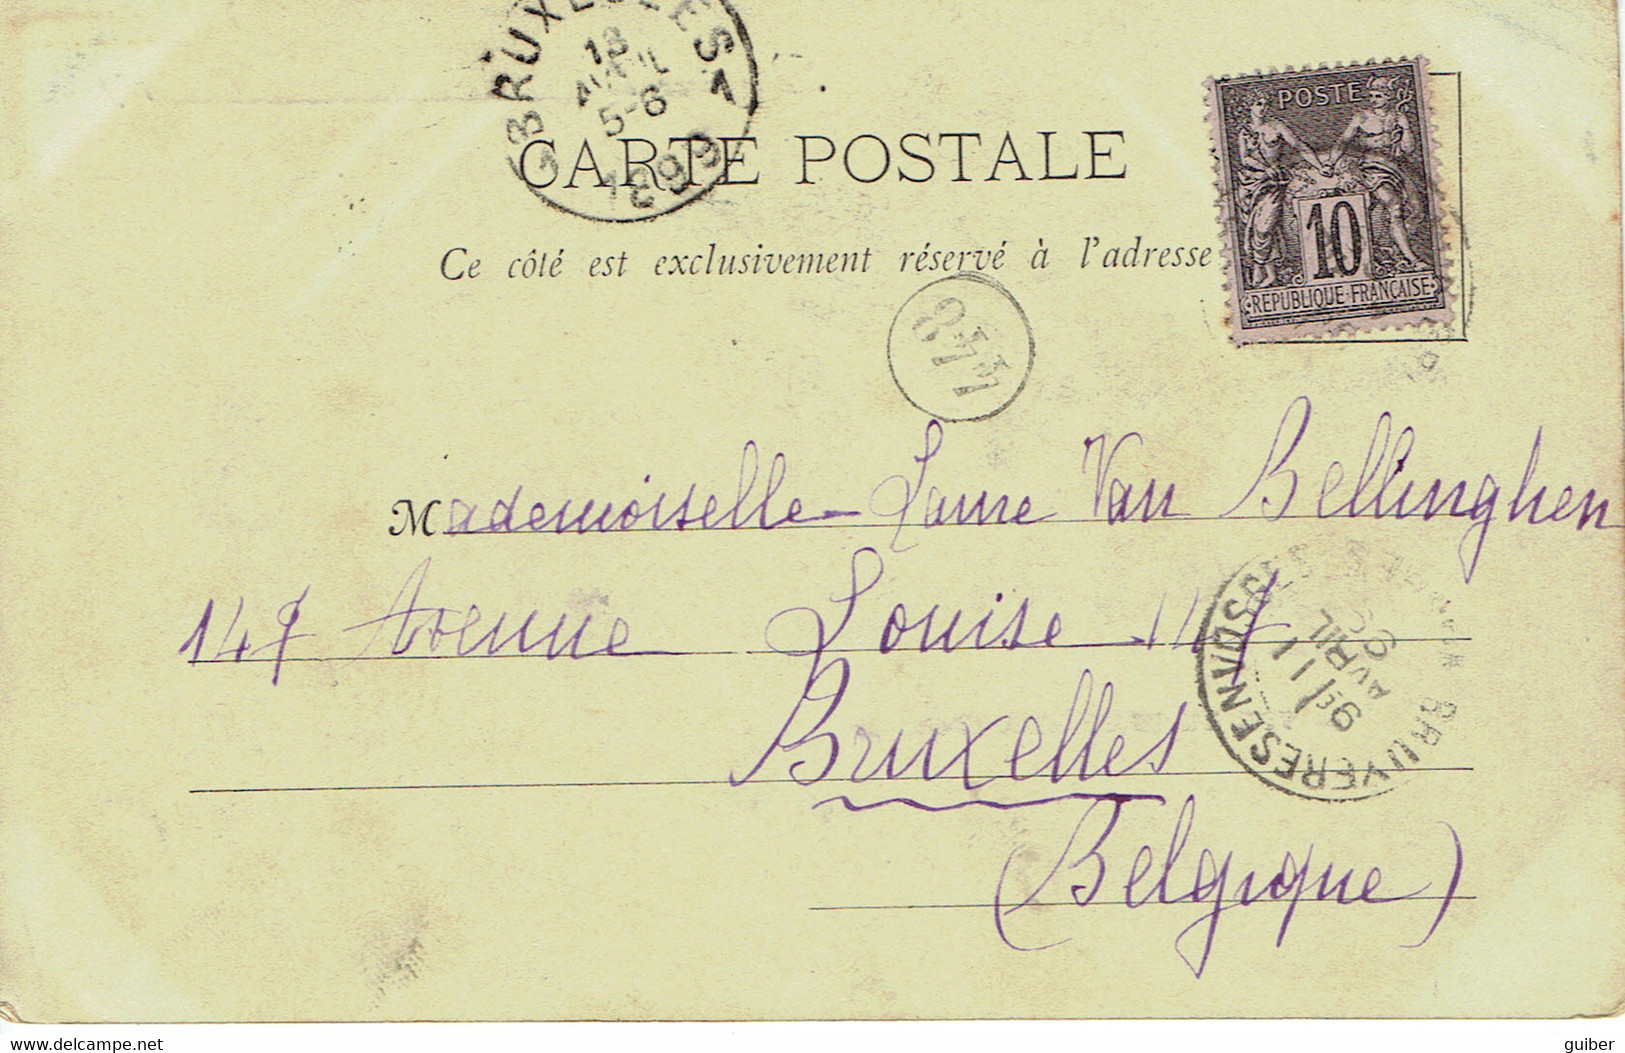 BRUXELLES 1
18
AVRIL
5-6
1899
CARTE POSTALE
POSTE
10
REPUBLIQUE FRANÇAISE
Ce côté est exclusivement réservé à l'adresse
Mademoiselle Laure Van Bellinghen
147 Avenue Louise 147
Bruxelles
(Belgique)
BRUYERES EN VOSGES
11
AVRIL
guiber